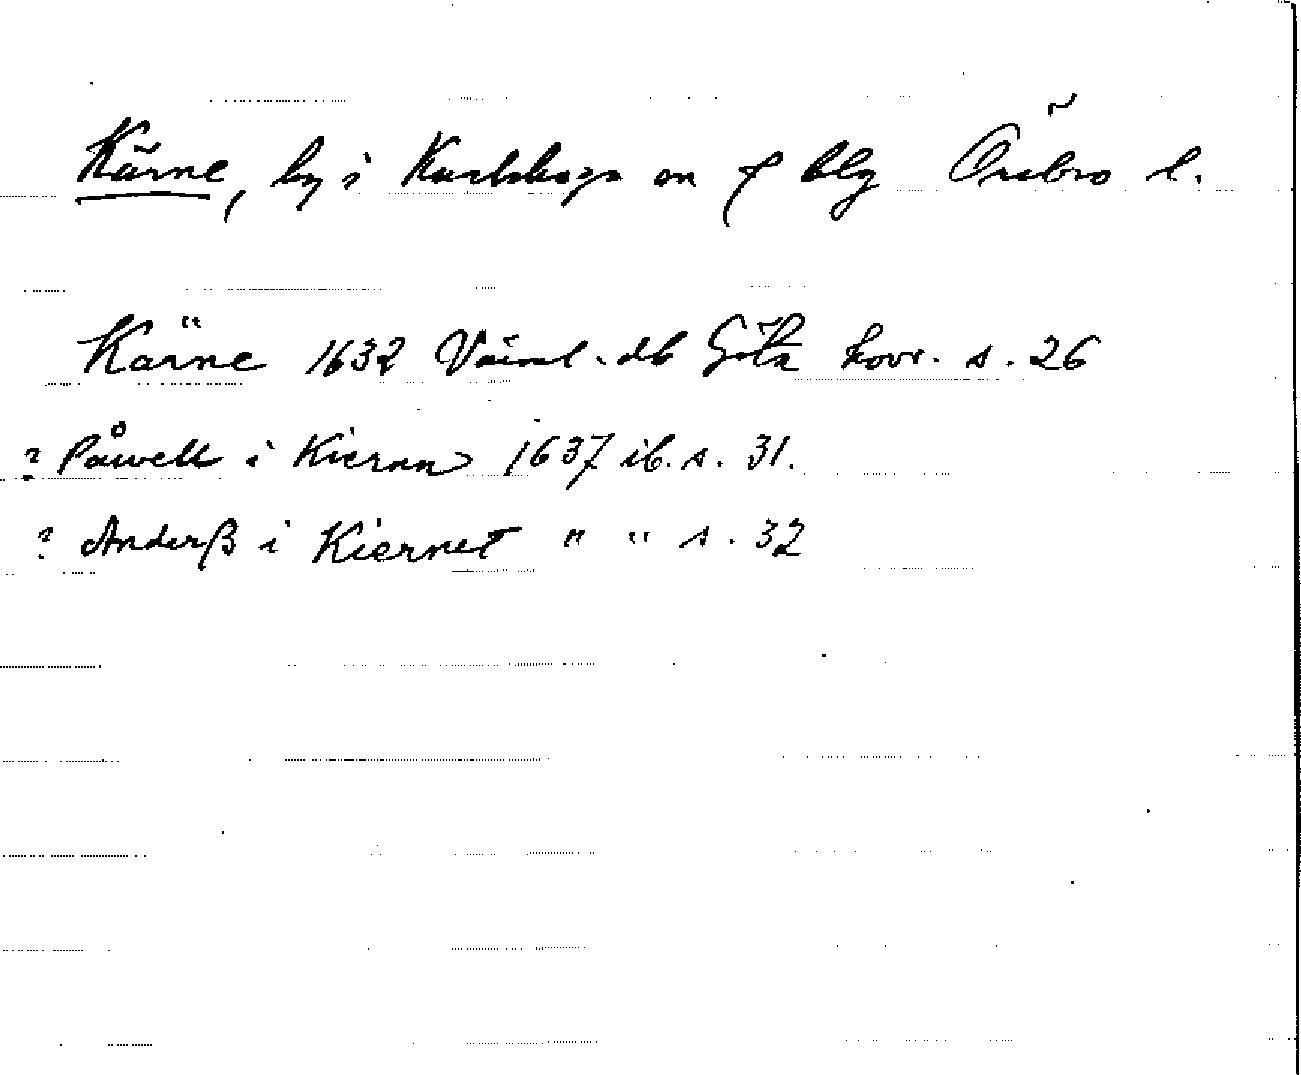 Kärne, by i Karlskoga sn o blg Örebro l.
Kärne 1632 Värml. db Göta hovr. s. 26
? Påwell i Kiernn 1637 ib. s. 31.
? Anderß i Kiernet " " s. 32